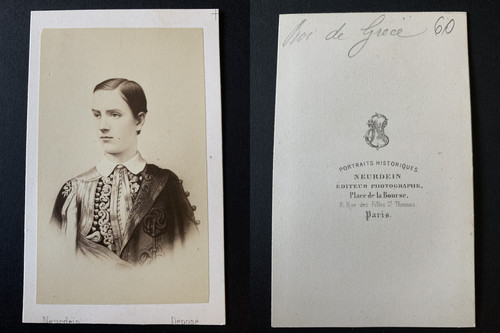 Neurdein
Déposé
Roi de Grèce 60
PORTRAITS HISTORIQUES
NEURDEIN
ÉDITEUR PHOTOGRAPHE,
Place de la Bourse,
8, Rue des Filles St Thomas.
Paris.